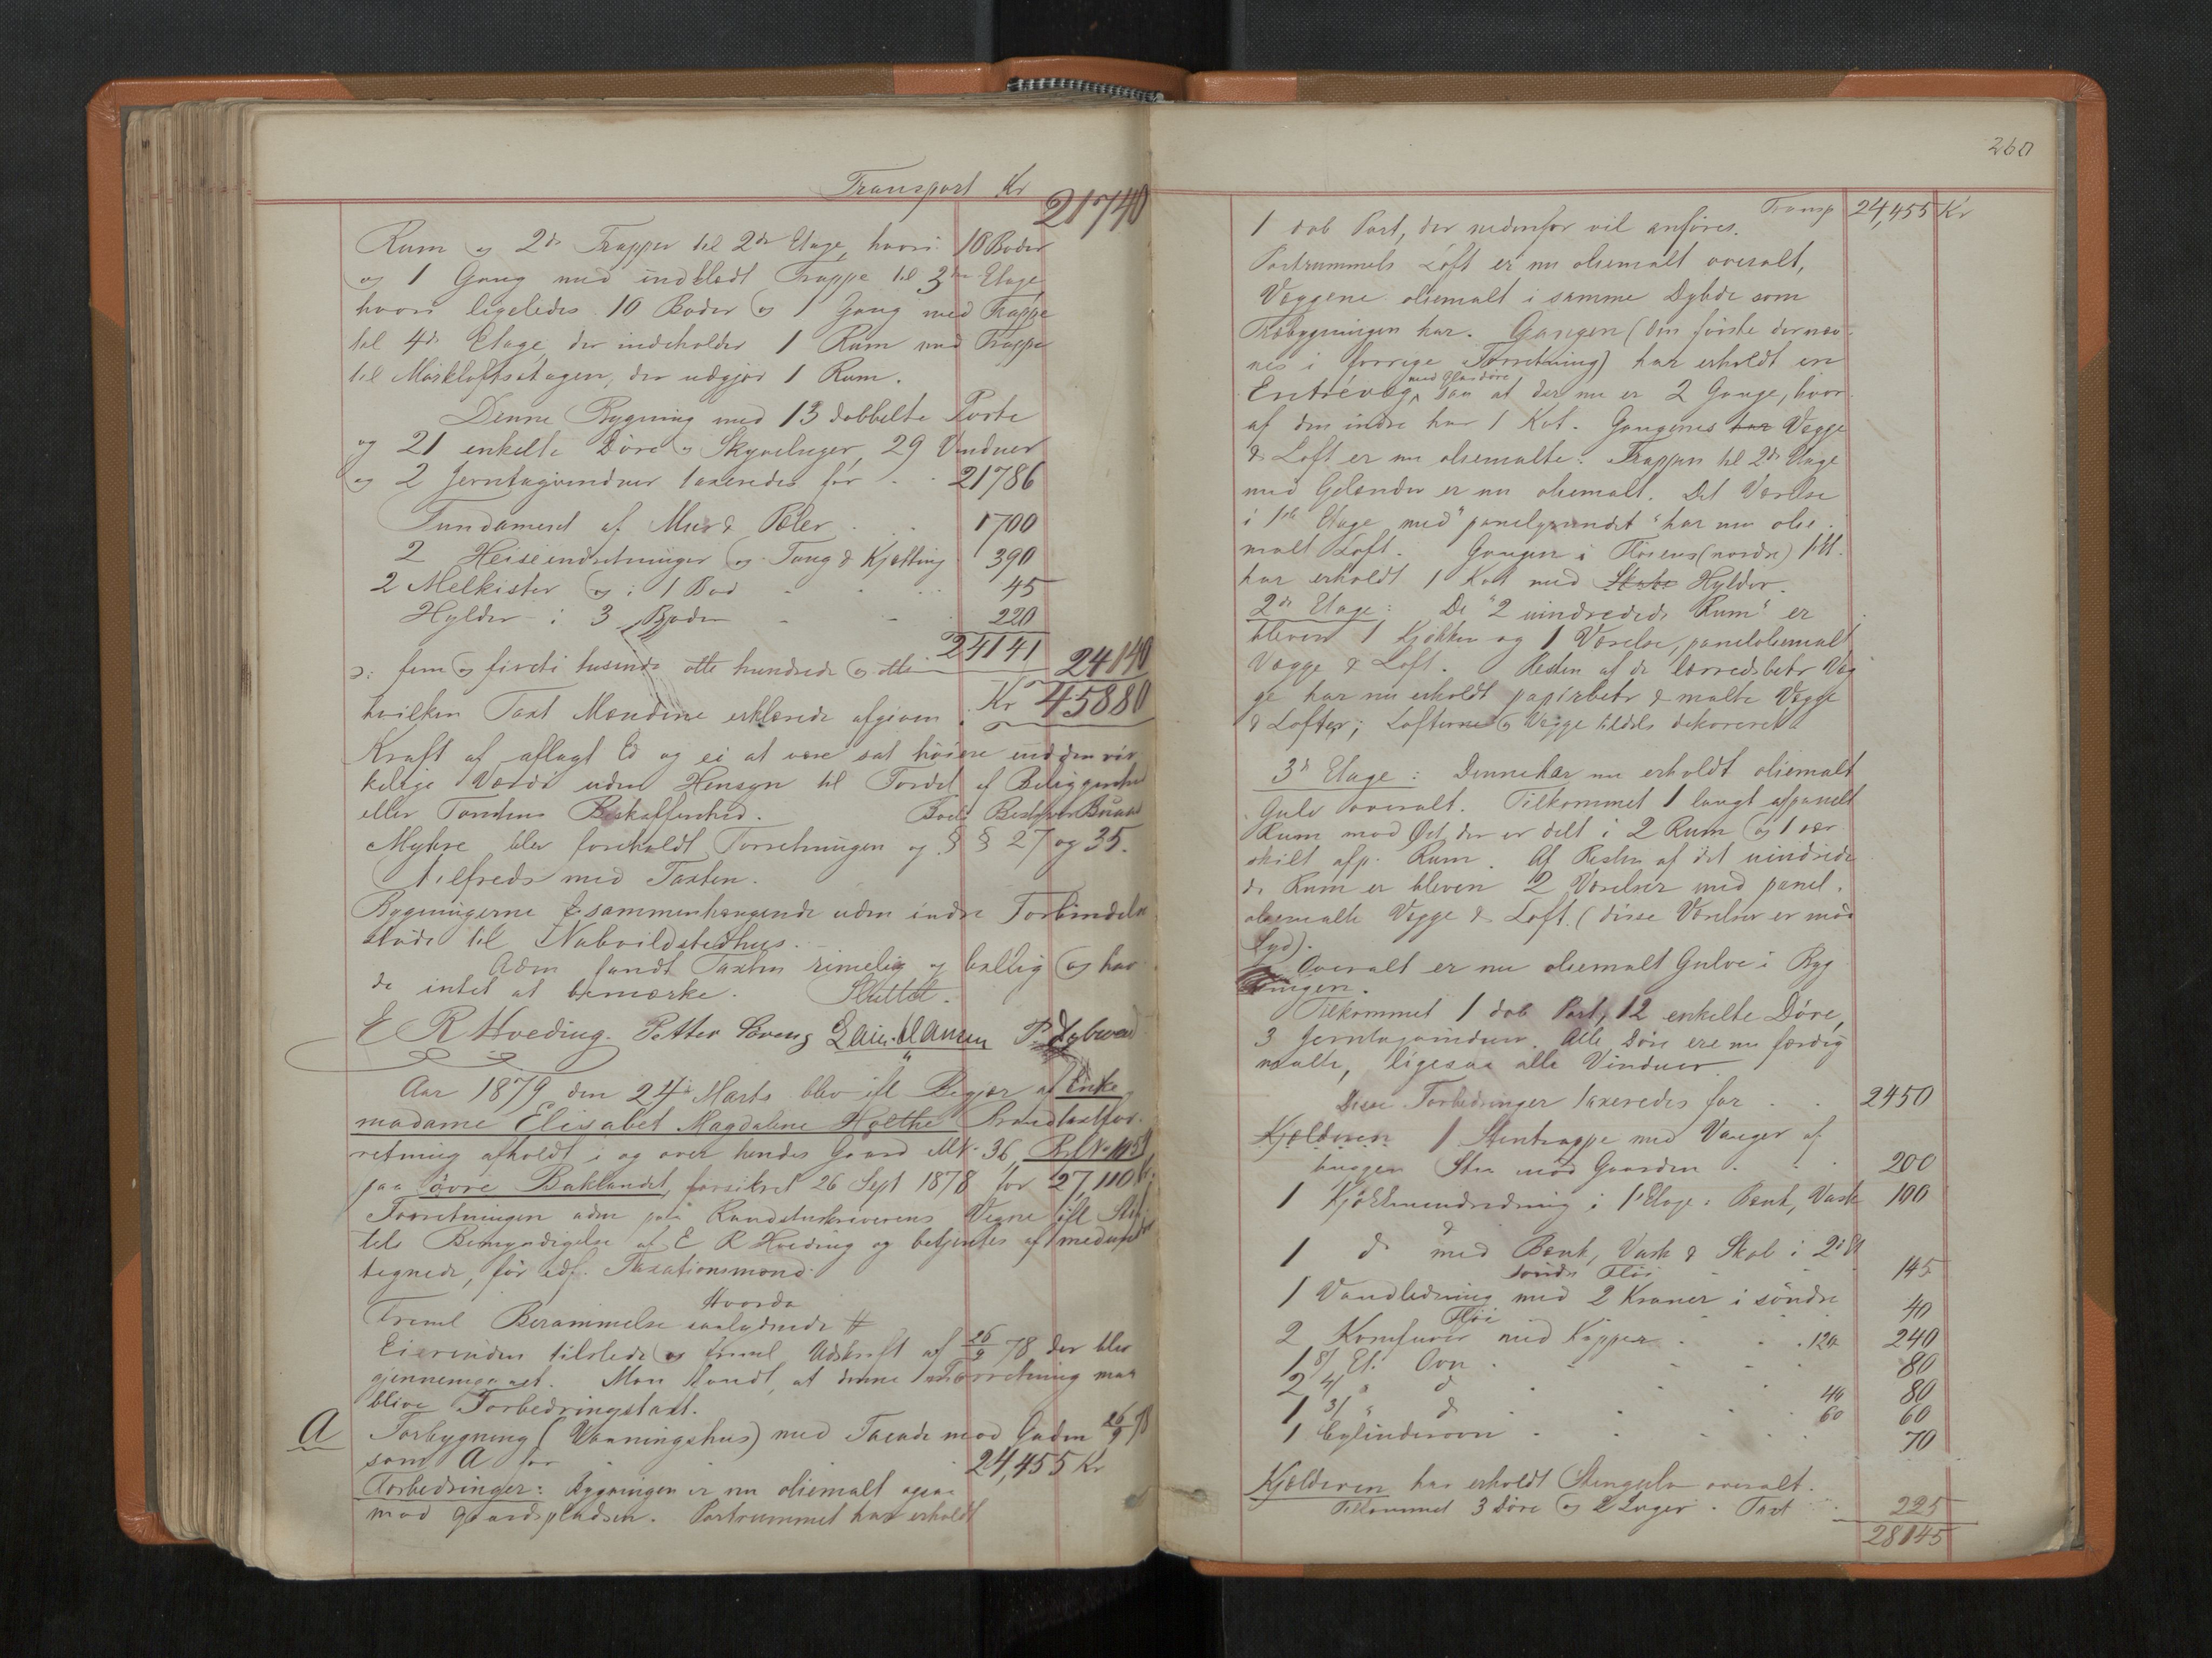 Transport Kr 21740
Rum og 2de Trapper til 2den Etage, hvori 10 Boder
og 1 Gang med indklædt Trappe til 3die Etage
hvori ligeledes 10 Boder og 1 Gang med Trappe
til 4de Etage, der indeholder 1 Rum med Trappe
til Mørkloftsetagen, der udgjør 1 Rum.
Denne Bygning med 13 dobbelte Porte
og 21 enkelte Døre og Skyveluger, 29 Vinduer
og 2 Jerntagvinduer taxeredes for 21786
Fundament af Mur & Pæler 1700
2 Heiseindretninger og Taug & Kjætting 390
2 Melkister og i 1 Bod 45
Hylder i 3 Boder 220
24141 24140
ɔ: fem og fireti tusinde otte hundrede og otti Kr 45880
hvilken Taxt Mændene erklærede afgiven i
Kraft af aflagt Ed og ei at være sat høiere end den vir
kelige Værdi uden Hensyn til Fordel af Beliggenhed
eller Tomtens Beskaffenhed.
Myhre blev foreholdt Forretningen og §§ 27 og 35.
tilfreds med Taxten.
Bygningerne sammenhængende uden indre Forbindelse
støde til Naboildstedhus.
Adm fandt Taxten rimelig og billig og hav
de intet at bemærke. Sluttet.
E R Hveding. Petter
Aar 1879 den 24de Marts blev ifl Begjær af Enke
madame Elisabet Magdalene Holthe Brandtaxtfor-
retning afholdt i og over hendes Gaard MN. 36,
paa øvre Baklandet, forsikret 26 Sept 1878 for 27,110
Forretningen adm paa Raadstuskriverens Vegne ifl Stif
tets Bemyndigelse af E R Hveding og betjentes af medun
tegnede, før edf. Taxationsmænd.
Freml Berammelse saalydende # Hvorda
Eierinden tilstede og freml Udskrift af 26/9 78 der blev
gjennemgaaet. Man fandt, at denne Forretning maa
blive Forbedringstaxt.
A Forbygning (Vaaningshus) med Facade mod Gaden 26/9 78
som A for 24,455 Kr
Forbedringer: Bygningen er nu oliemalt ogsaa
mod Gaardspladsen. Portrummet har erholdt
260
Transp 24,455 Kr
1 dob Port, der nedenfor vil anføres.
Portrummets Loft er nu oliemalt overalt,
Væggene oliemalt i samme Dybde som
Træbygningen har. Gangen (den første der næv-
nes i forrige Forretning) har erholdt en
Entrévæg med Glasdøre saa at der nu er 2 Gange, hvor
af den indre har 1 Kot. Gangenes har Vægge
& Loft er nu oliemalte. Trappen til 2den Etage
med Gelænder er nu oliemalt. Det Værelse
i 1ste Etage med "panelgrundet" har nu olie-
malt Loft. Gangen i Fløiens (nordre) 1 Et.
har erholdt 1 Kot med Skabe Hylder.
2de Etage: De "2 uindredede Rum" er
bleven 1 Kjøkken og 1 Værelse, paneloliemalt
Vægge & Loft. Resten af de lærredsbetr Væg
ge har nu erholdt papirbetr & malte Vægge
& Lofter; Lofterne og Vægge tildels dekoreret.
3de Etage: Denne har nu erholdt oliemalt
Gulv overalt. Tilkommet 1 langt afpanelt
Rum mod Øst, der er delt i 2 Rum og 1 sær
skilt afp. Rum. Af Resten af det uindrede
de Rum er bleven 2 Værelser med panel.
oliemalte Vægge & Loft. (disse Værelser er mod
Syd).
Overalt er nu oliemalt Gulve i Byg
ningen.
Tilkommet 1 dob Port, 12 enkelte Døre,
3 Jerntagvinduer. Alle Døre ere nu færdig
malte, ligesaa alle Vinduer.
Disse Forbedringer taxeredes for 2450
Kjælderen 1 Stentrappe med Vanger af
huggen Sten mod Gaarden 200
1 Kjøkkenindredning i 1 Etage: Bænk, Vask 100
1 do med Bænk, Vask & Skab i 2d Et
søndre Fløi 145
1 Vandledning med 2 Kraner i søndre
Fløi 40
2 Komfurer med Kapper 120 240
1 8/ Et. Ovn 80
2 4/ " d 40 80
1 3/ " d 60 60
1 Cylinderovn 70
Kjælderen har erholdt Stengulv overalt.
Tilkommet 3 Døre og 2 Luger. Taxt 225
28145